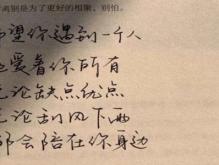 离别是为了更好的相聚，别怕。
希望你遇到一个人
他爱着你所有
无论缺点优点
无论刮风下雨
都会陪在你身边